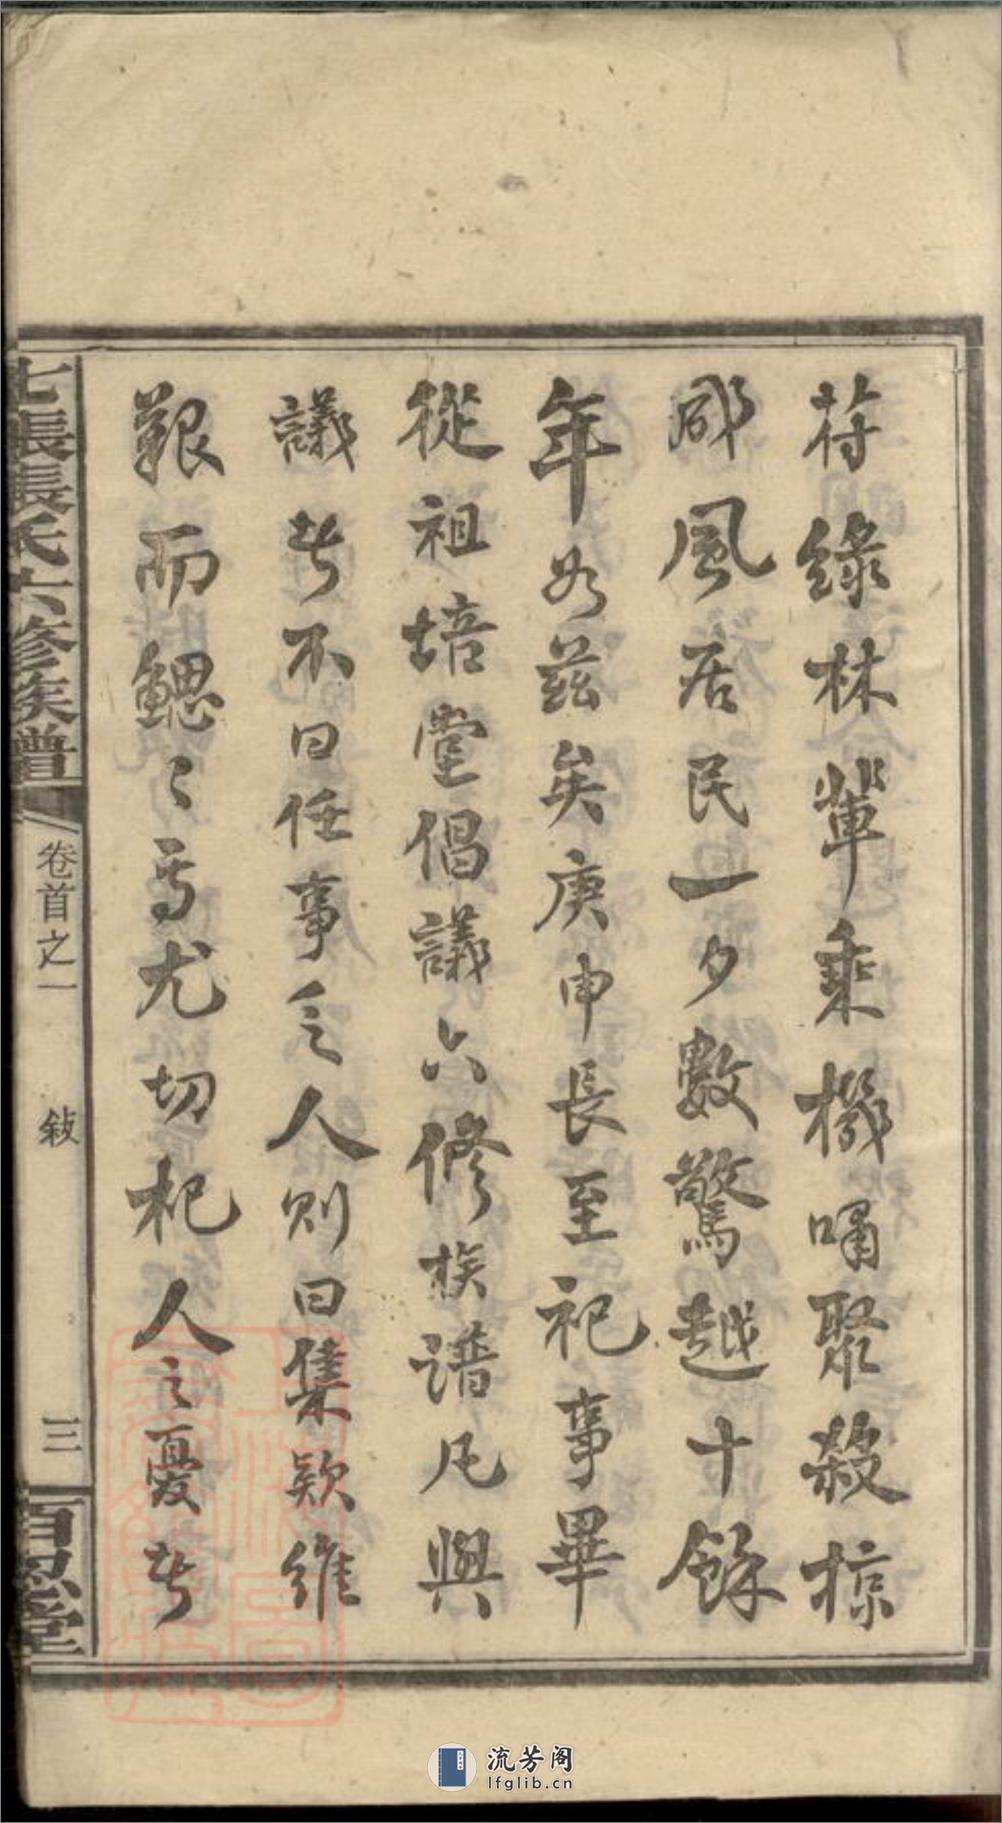 苻綠林輩乘機嘯聚殺掠
成風居民一夕數驚越十餘
年於茲矣庚申長至祀事畢
從祖培堂倡議六修族譜凡與
議者不曰任事之人則曰集款維
艱而鰓〻焉尤切杞人之憂者
七張張氏六修族譜
卷首之一
敍
三
百忍堂
流芳阁
lfglib.cn